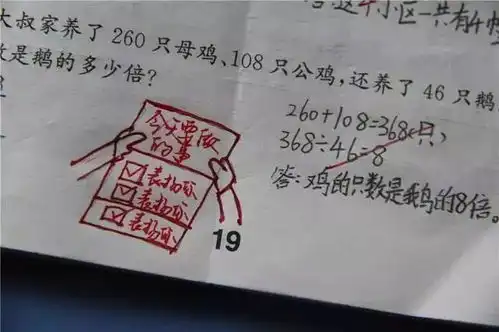 小区一共有4
大叔家养了 260 只母鸡、108 只公鸡，还养了 46 只鹅
是鹅的多少倍？
260+108=368(只)
368÷46=8
答：鸡的只数是鹅的8倍。
今天要做
的事
表扬你
表扬你
表扬你
19